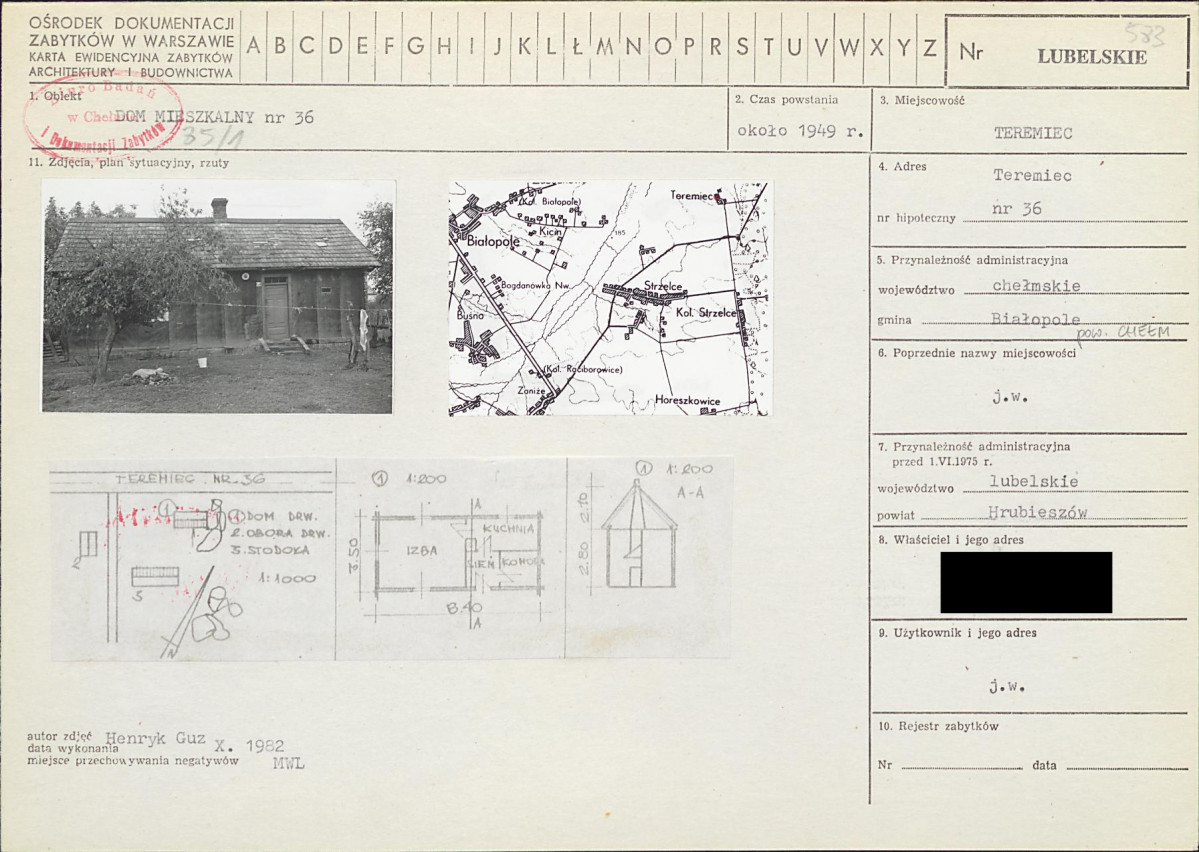 OŚRODEK DOKUMENTACJI
ZABYTKÓW W WARSZAWIE
KARTA EWIDENCYJNA ZABYTKÓW
ARCHITEKTURY I BUDOWNICTWA
A B C D E F G H I J K L Ł M N O P R S T U V W X Y Z
Nr
583
LUBELSKIE
1. Obiekt
Biuro Badań
w Chełmie
i Dokumentacji Zabytków
DOM MIESZKALNY nr 36
35/1
2. Czas powstania
około 1949 r.
3. Miejscowość
TEREMIEC
11. Zdjęcia, plan sytuacyjny, rzuty
4. Adres
Teremiec
nr hipoteczny nr 36
5. Przynależność administracyjna
województwo chełmskie
gmina Białopole
pow. CHEŁM
6. Poprzednie nazwy miejscowości
j.w.
7. Przynależność administracyjna
przed 1.VI.1975 r.
województwo lubelskie
powiat Hrubieszów
8. Właściciel i jego adres
9. Użytkownik i jego adres
j.w.
10. Rejestr zabytków
Nr data
(Kol. Białopole)
Teremiec
Kicin
195
Białopole
Bogdanówka Nw.
Strzelce
Kol. Strzelce
Buśno
(Kol. Raciborowice)
Zaniże
Horeszkowice
TEREMIEC NR 36
1
1 DOM DRW.
2. OBORA DRW.
3. STODOŁA
1:1000
2
3
N
1 1:200
A
KUCHNIA
IZBA
SIEŃ
KOMORA
5.50
8.40
A
1 1:200
A-A
2.10
2.80
autor zdjęć Henryk Guz
data wykonania X. 1982
miejsce przechowywania negatywów MWL